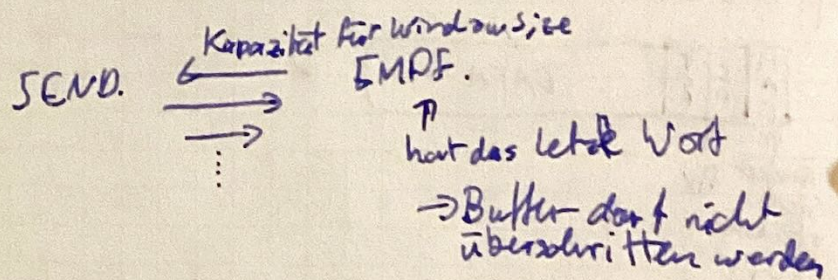 Kapazität für Windowsize
SEND. EMPF.
hat das letzte Wort
→ Buffer darf nicht
überschritten werden